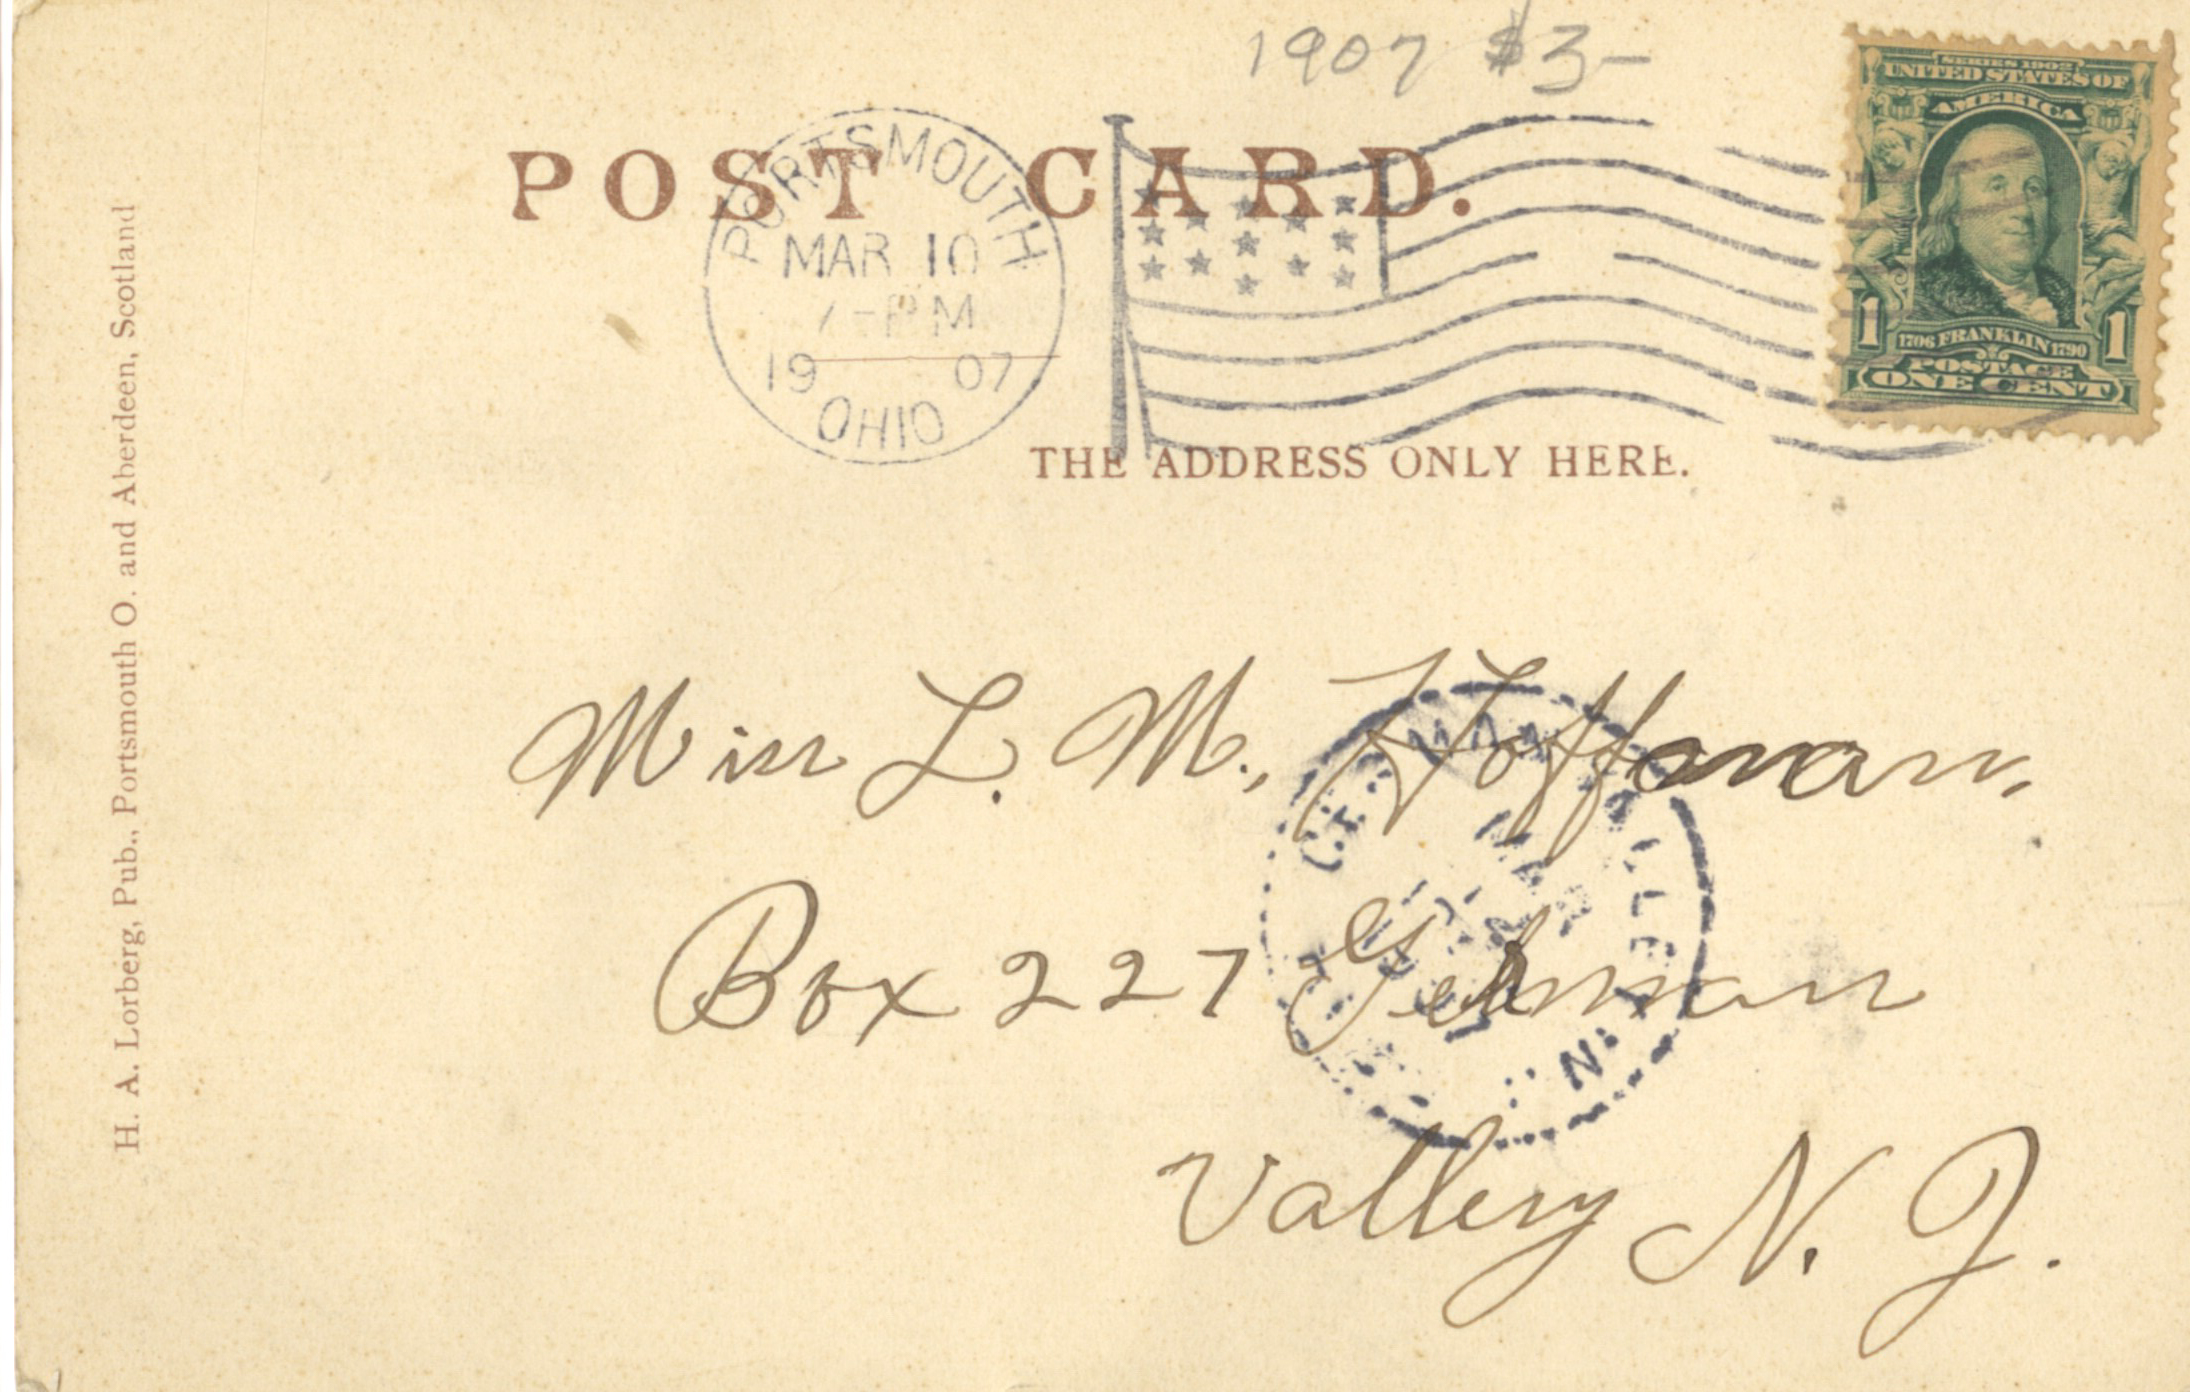 1907 $3-
SERIES 1902
UNITED STATES OF
AMERICA
1 1
1706 FRANKLIN 1790
POSTAGE
ONE CENT
POST CARD.
PORTSMOUTH
MAR 10
7-PM
19 07
OHIO
THE ADDRESS ONLY HERE.
H. A. Lorberg, Pub., Portsmouth O. and Aberdeen, Scotland
Miss L. M., Hoffman,
Box 227 German
Vallery N. J.
N.